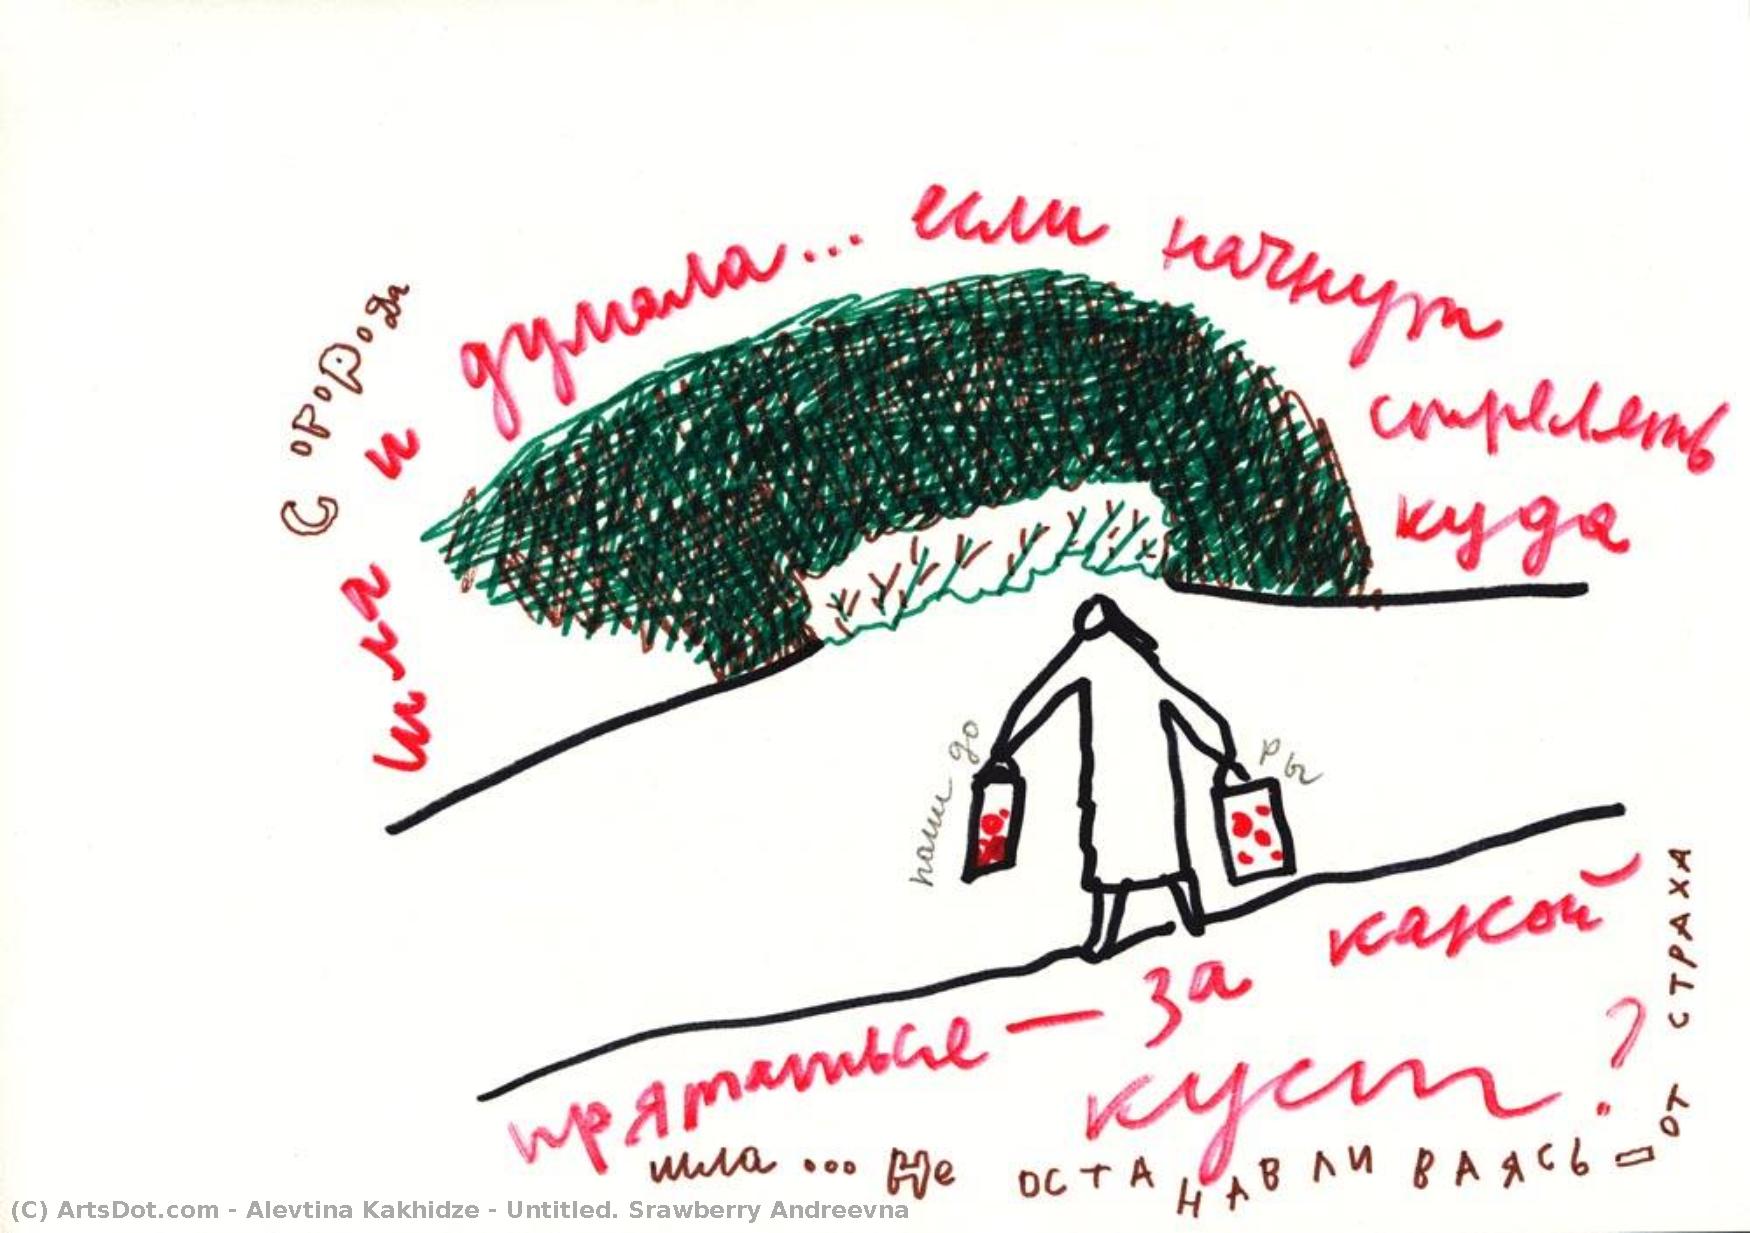 С ОРОДа
шла и думала... если начнут
стрелять
куда
прятаться — за какой
куст?
наши до
ры
шла ... Не ОСТАНАВЛИВАЯСЬ — ОТ СТРАХА
(C) ArtsDot.com - Alevtina Kakhidze - Untitled. Srawberry Andreevna